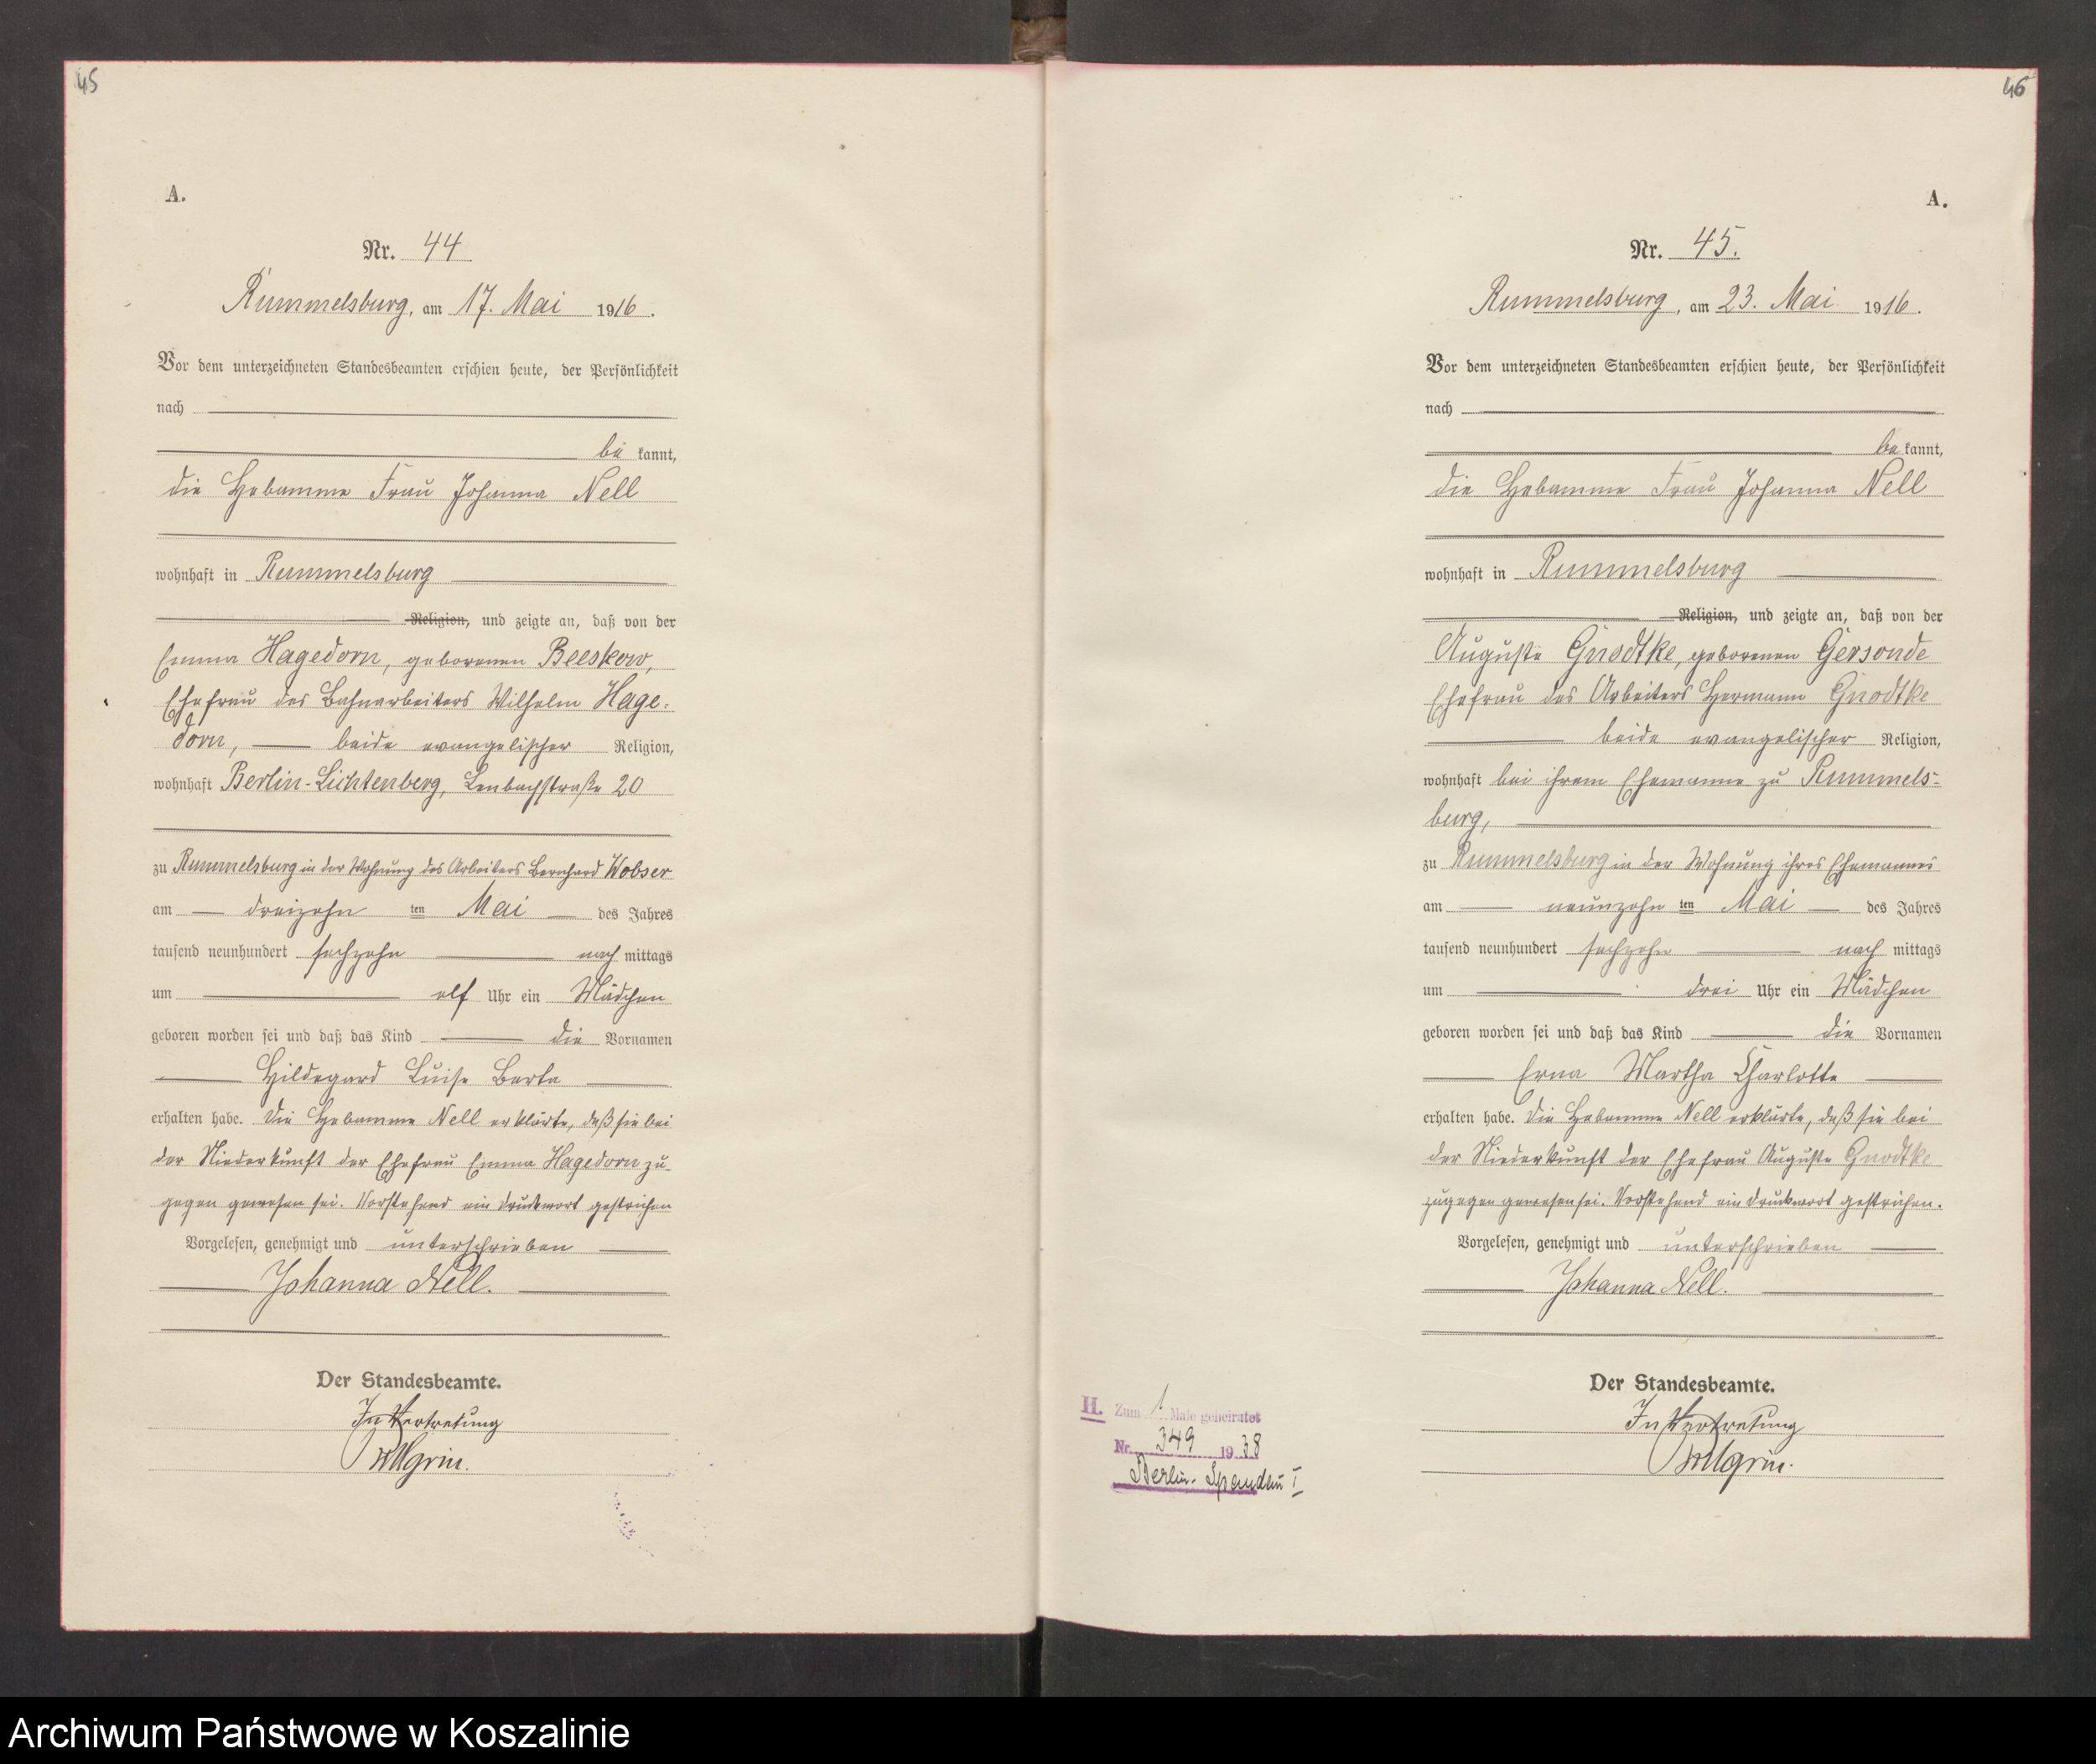 45
A.
Nr. 44
Rummelsburg, am 17. Mai 1916.
Vor dem unterzeichneten Standesbeamten erschien heute, der Persönlichkeit
nach
be kannt,
die Hebamme Frau Johanna Nell
wohnhaft in Rummelsburg
Religion, und zeigte an, daß von der
Emma Hagedorn, geborenen Beeskow,
Ehefrau des Bahnarbeiters Wilhelm Hage-
dorn, beide evangelischer Religion,
wohnhaft Berlin-Lichtenberg, Lenbachstraße 20
zu Rummelsburg in der Wohnung des Arbeiters Bernhard Wobser
am dreizehn ten Mai des Jahres
tausend neunhundert sechzehn nach mittags
um elf Uhr ein Mädchen
geboren worden sei und daß das Kind die Vornamen
Hildegard Luise Berta
erhalten habe. Die Hebamme Nell erklärte, daß sie bei
der Niederkunft der Ehefrau Emma Hagedorn zu-
gegen gewesen sei. Vorstehend ein Druckwort gestrichen
Vorgelesen, genehmigt und unterschrieben
Johanna Nell.
Der Standesbeamte.
In Vertretung
46
A.
Nr. 45.
Rummelsburg, am 23. Mai 1916.
Vor dem unterzeichneten Standesbeamten erschien heute, der Persönlichkeit
nach
be kannt,
die Hebamme Frau Johanna Nell
wohnhaft in Rummelsburg
Religion, und zeigte an, daß von der
Auguste Gnodtke, geborenen Gersonde
Ehefrau des Arbeiters Hermann Gnodtke
beide evangelischer Religion,
wohnhaft bei ihrem Ehemanne zu Rummels-
burg,
zu Rummelsburg in der Wohnung ihres Ehemannes
am neunzehn ten Mai des Jahres
tausend neunhundert sechzehn nach mittags
um drei Uhr ein Mädchen
geboren worden sei und daß das Kind die Vornamen
Erna Martha Charlotte
erhalten habe. Die Hebamme Nell erklärte, daß sie bei
der Niederkunft der Ehefrau Auguste Gnodtke
zugegen gewesen sei. Vorstehend ein Druckwort gestrichen.
Vorgelesen, genehmigt und unterschrieben
Johanna Nell.
Der Standesbeamte.
In Vertretung
H. Zum 1 Male geheiratet
Nr. 349 1938
Berlin-Spandau I
Archiwum Państwowe w Koszalinie